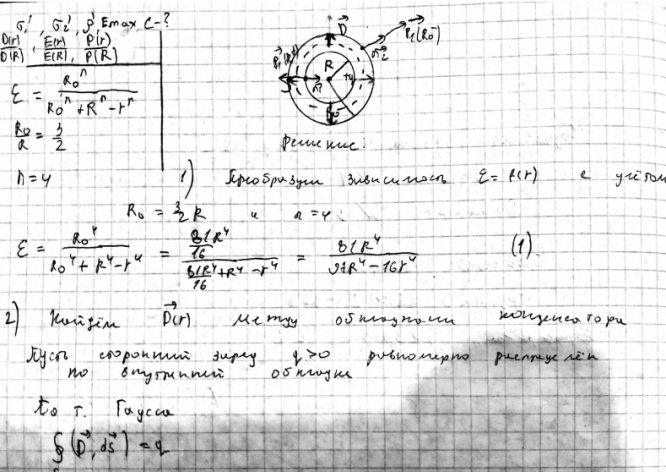 σ₁', σ₂', ρ' Emax C-?
D(r)/D(R), E(r)/E(R), P(r)/P(R)
ε = R₀ⁿ/(R₀ⁿ + Rⁿ - rⁿ)
R₀/R = 3/2
n = 4
D
P₁(R₀)
σ₂
R
Решение:
1) Преобразуем зависимость ε = f(r) с учётом
R₀ = 3/2 R и n = 4
ε = R₀⁴/(R₀⁴ + R⁴ - r⁴) = (81R⁴/16)/(81R⁴/16 + R⁴ - r⁴) = 81R⁴/(97R⁴ - 16r⁴) (1)
2) Найдём D(r) между обкладками конденсатора
Пусть сторонний заряд q>0 равномерно распределён
по внутренней обкладке
По т. Гаусса
∮(D, dS) = q